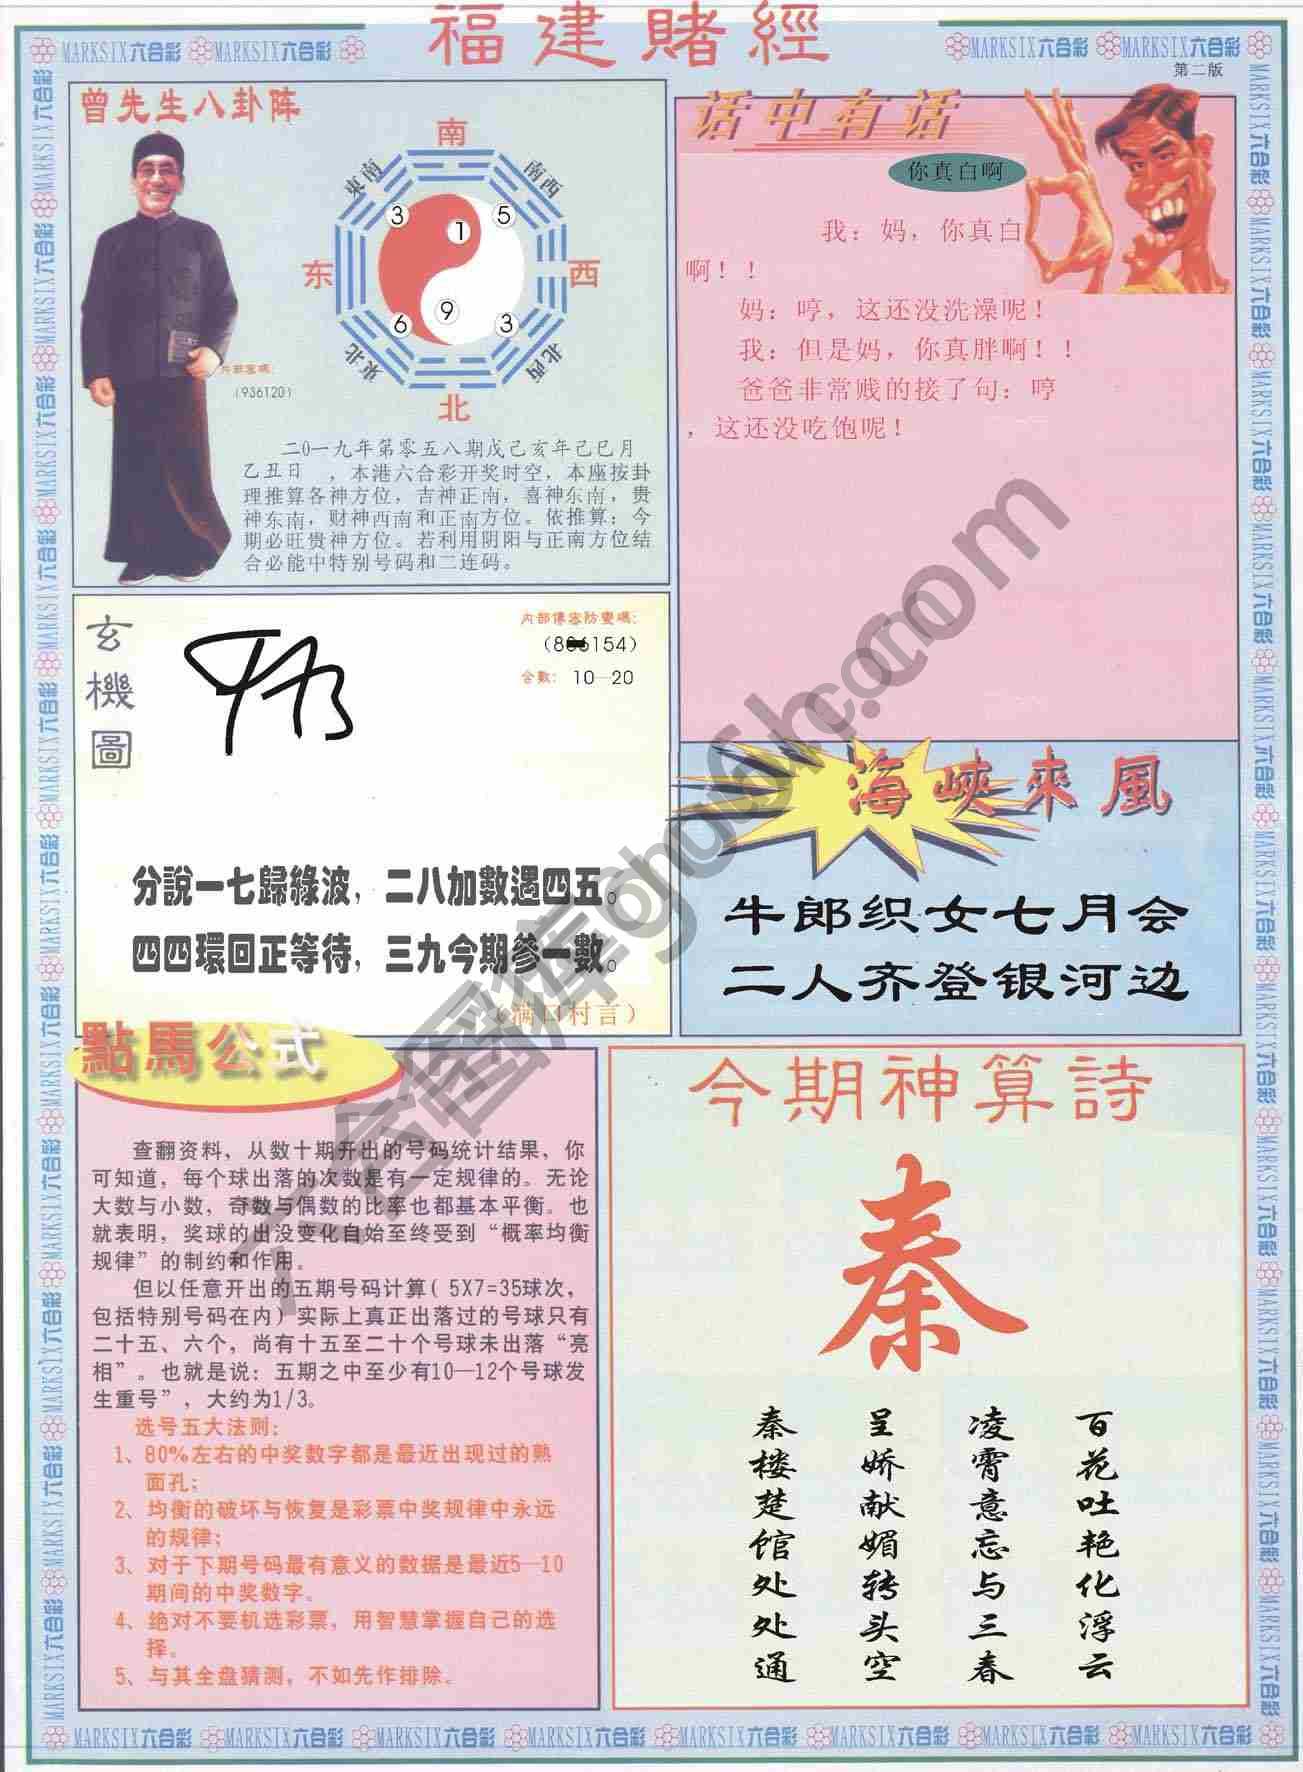 福建賭經
MARKSIX六合彩 MARKSIX六合彩
MARKSIX六合彩 MARKSIX六合彩
第二版
曾先生八卦阵
南
東南
南西
3
1
5
东
西
6
9
3
東北
北西
北
内部密碼:
(936120)
二0一九年第零五八期戊己亥年己巳月
乙丑日 ，本港六合彩开奖时空，本座按卦
理推算各神方位，吉神正南，喜神东南，贵
神东南，财神西南和正南方位。依推算；今
期必旺贵神方位。若利用阴阳与正南方位结
合必能中特别号码和二连码。
话中有话
你真白啊
我：妈，你真白
啊！！
妈：哼，这还没洗澡呢！
我：但是妈，你真胖啊！！
爸爸非常贱的接了句：哼
，这还没吃饱呢！
玄機圖
内部傳密防變碼:
(886154)
合數: 10—20
分說一七歸綠波，二八加數遇四五。
四四環回正等待，三九今期參一數。
（满口村言）
海峽來風
牛郎织女七月会
二人齐登银河边
點馬公式
查翻资料，从数十期开出的号码统计结果，你
可知道，每个球出落的次数是有一定规律的。无论
大数与小数，奇数与偶数的比率也都基本平衡。也
就表明，奖球的出没变化自始至终受到“概率均衡
规律”的制约和作用。
但以任意开出的五期号码计算( 5X7=35球次，
包括特别号码在内）实际上真正出落过的号球只有
二十五、六个，尚有十五至二十个号球未出落“亮
相”。也就是说：五期之中至少有10—12个号球发
生重号”，大约为1/3。
选号五大法则：
1、80%左右的中奖数字都是最近出现过的熟
面孔；
2、均衡的破坏与恢复是彩票中奖规律中永远
的规律；
3、对于下期号码最有意义的数据是最近5—10
期间的中奖数字。
4、绝对不要机选彩票，用智慧掌握自己的选
择。
5、与其全盘猜测，不如先作排除。
今期神算詩
秦
百花吐艳化浮云
凌霄意忘与三春
呈娇献媚转头空
秦楼楚馆处处通
MARKSIX六合彩 MARKSIX六合彩 MARKSIX六合彩 MARKSIX六合彩 MARKSIX六合彩 MARKSIX六合彩 MARKSIX六合彩 MARKSIX六合彩